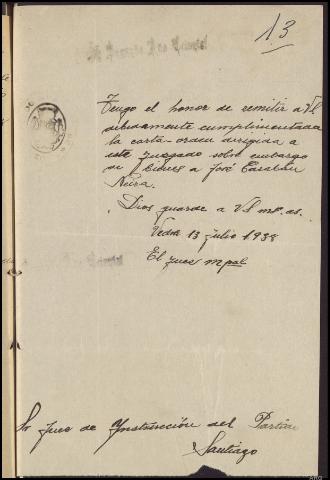 13
Tengo el honor de remitir a V.S.
debidamente cumplimentada
la carta-orden dirigida a
este Juzgado sobre embargo
de bienes a José
Neira.
Dios guarde a V.S. ms. as.
Vedra 13 julio 1938
El Juez mpal
Sr Juez de Instrucción del Partido
Santiago